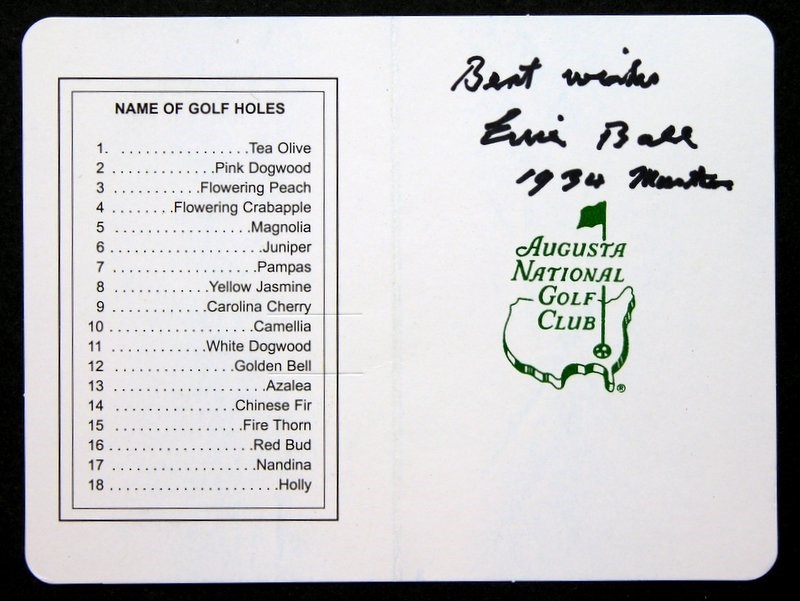 NAME OF GOLF HOLES
1. . . . . . . . . . . . . . . . . .Tea Olive
2 . . . . . . . . . . . . . .Pink Dogwood
3 . . . . . . . . . . . .Flowering Peach
4 . . . . . . . .Flowering Crabapple
5 . . . . . . . . . . . . . . . . . .Magnolia
6 . . . . . . . . . . . . . . . . . . . .Juniper
7 . . . . . . . . . . . . . . . . . . .Pampas
8 . . . . . . . . . . . . .Yellow Jasmine
9 . . . . . . . . . . . . .Carolina Cherry
10 . . . . . . . . . . . . . . . . . . .Camellia
11 . . . . . . . . . . . . .White Dogwood
12 . . . . . . . . . . . . . . . .Golden Bell
13 . . . . . . . . . . . . . . . . . . . .Azalea
14 . . . . . . . . . . . . . . . .Chinese Fir
15 . . . . . . . . . . . . . . . . .Fire Thorn
16 . . . . . . . . . . . . . . . . . . .Red Bud
17 . . . . . . . . . . . . . . . . . . .Nandina
18 . . . . . . . . . . . . . . . . . . . . . .Holly
Best wishes
Errie Ball
1934 Masters
AUGUSTA
NATIONAL
GOLF
CLUB
®